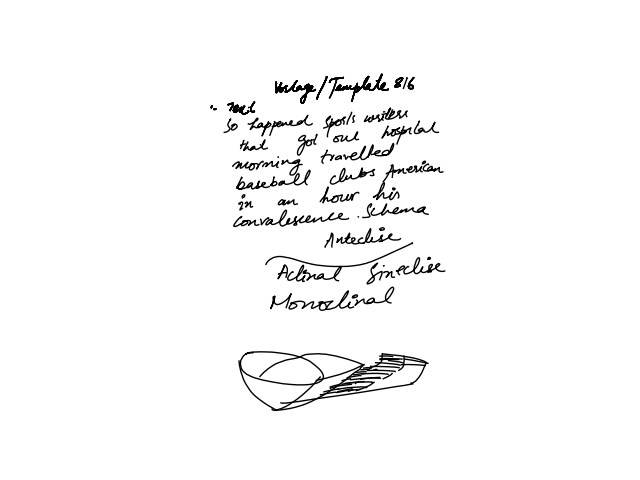 Vorlage/Template 816
:- Text
So happened sports writers
that got out hospital
morning travelled
baseball clubs American
in an hour his
convalescence. Schema
Anteclise
Aclinal Sineclise
Monoclinal